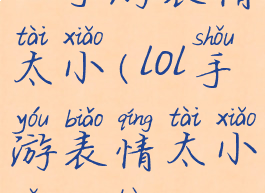 tài xiǎo shǒu
太小(lol手
yóu biǎo qíng tài xiǎo
游表情太小